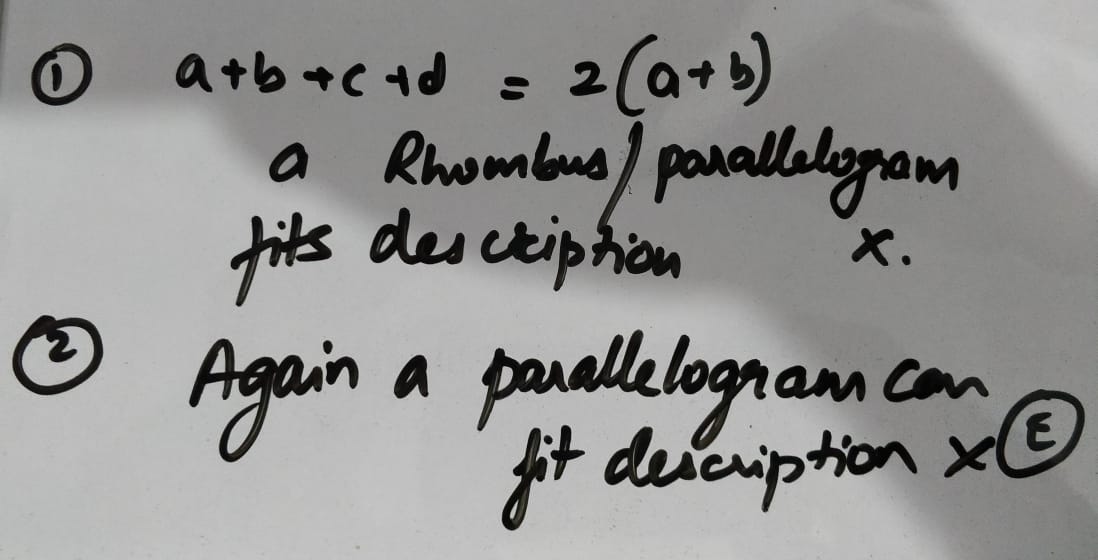 ① a+b+c+d = 2(a+b)
a Rhombus/parallelogram
fits description x.
② Again a parallelogram can
fit description x Ⓔ